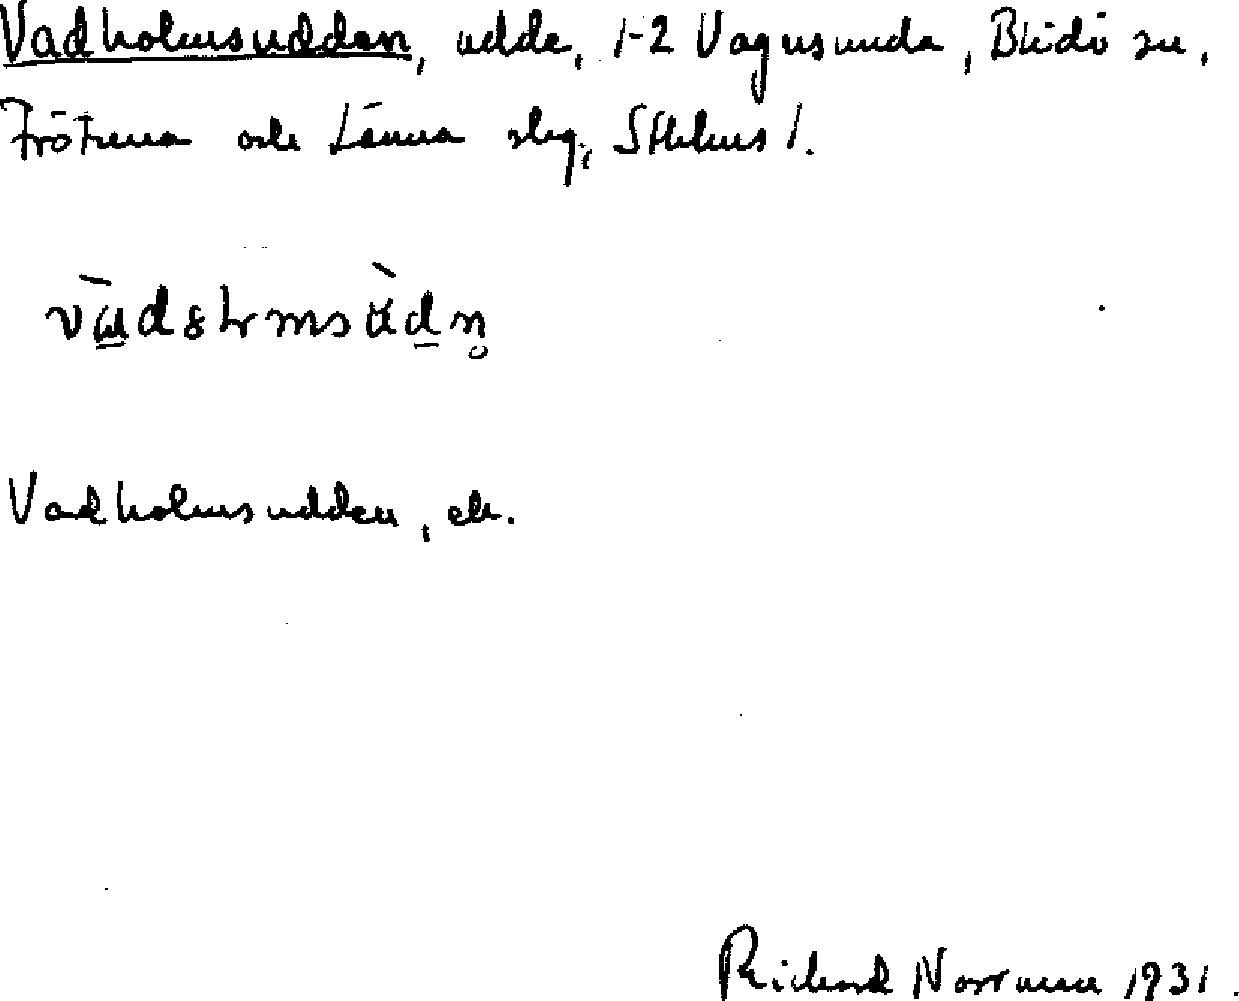 Vadholmsudden, udde, 1-2 Vagnsunda, Blidö sn,
Frötuna och Länna skg, Sthlms l.
Vadholmsudden, ek.
Richard Norrman 1931.